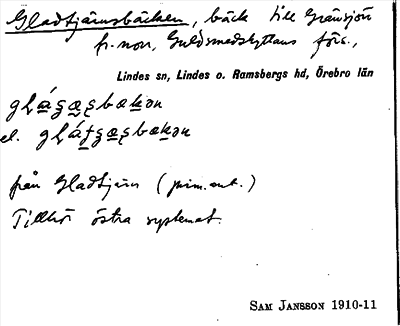 Gladtjärnsbäcken, bäck till Gränsjön
fr. norr, Guldsmedshyttans förs.,
Lindes sn, Lindes o. Ramsbergs hd, Örebro län
el.
från Gladtjärn (prim. ant.)
Tillhör östra systemet.
SAM JANSSON 1910-11